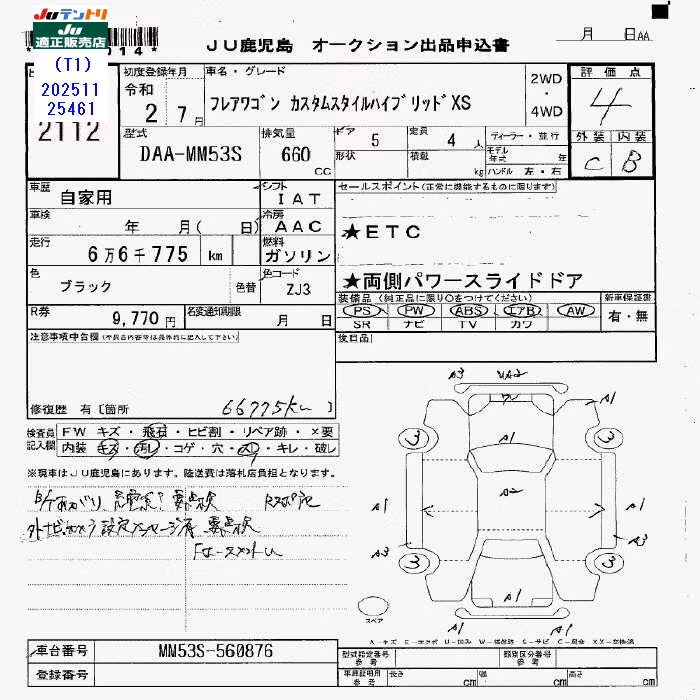 Juテントリ
Ju
適正販売店
(T1)
202511
25461
2112
JU鹿児島 オークション出品申込書
月 日AA
初度登録年月
令和
2 7月
車名・グレード
フレアワゴン カスタムスタイルハイブリッドXS
2WD
・
4WD
評価点
4
外装 内装
C B
型式
DAA-MM53S
排気量
660
CC
ドア 5
形状
定員 4 人
積載 kg
ディーラー・並行
モデル年式 年
ハンドル 左・右
車歴 自家用
シフト IAT
車検 年 月( 日)
冷房 AAC
走行 6万6千775 km
燃料 ガソリン
色 ブラック 色替
色コード ZJ3
R券 9,770円
名変通知期限 月 日
セールスポイント(正常に機能するものに限ります)
★ETC
★両側パワースライドドア
装備品(純正品に限り○をつけてください)
新車保証書
PS PW ABS エアB AW
有・無
SR ナビ TV カワ
後日品
注意事項申告欄
修復歴 有〔箇所 66775km 〕
検査員記入欄
FW キズ・飛石・ヒビ割・リペア跡・×要
内装・キズ・汚レ・コゲ・穴・スレ・キレ・破レ
※現車はJU鹿児島にあります。陸送費は落札店負担となります。
要点検
要点検
A3 A1
A1
3 3
A2
A1 A1
A3 A3
3 3
A1
A1 A1
スペア
車台番号 MM53S-560876
登録番号
型式指定番号 参考
類別区分番号 参考
車庫証明用 参考 長さ cm 幅 cm 高さ cm